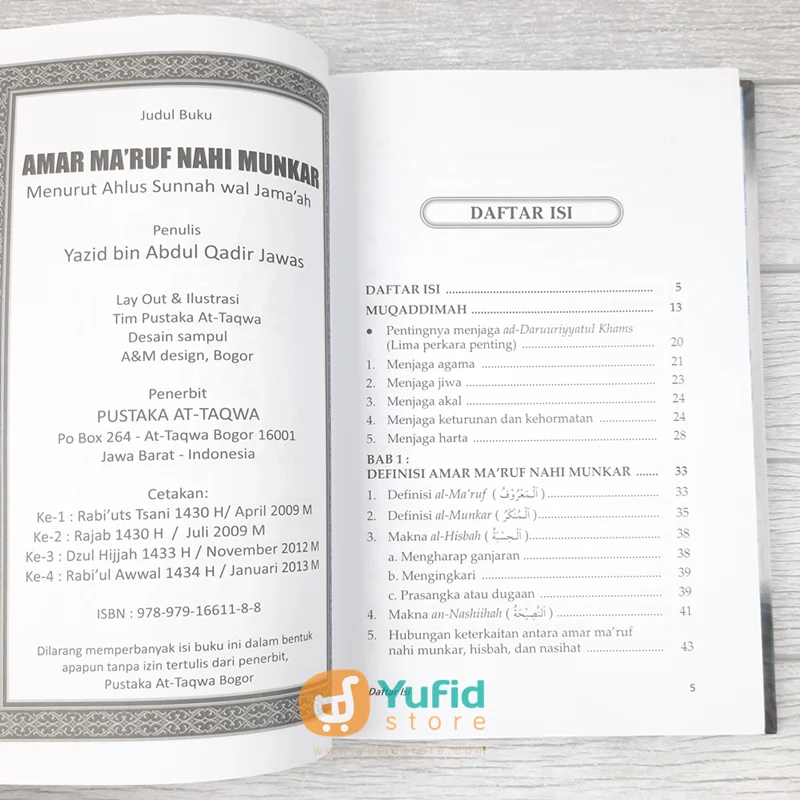 Judul Buku
AMAR MA'RUF NAHI MUNKAR
Menurut Ahlus Sunnah wal Jama'ah
Penulis
Yazid bin Abdul Qadir Jawas
Lay Out & Ilustrasi
Tim Pustaka At-Taqwa
Desain sampul
A&M design, Bogor
Penerbit
PUSTAKA AT-TAQWA
Po Box 264 - At-Taqwa Bogor 16001
Jawa Barat - Indonesia
Cetakan:
Ke-1 : Rabi'uts Tsani 1430 H/ April 2009 M
Ke-2 : Rajab 1430 H / Juli 2009 M
Ke-3 : Dzul Hijjah 1433 H / November 2012 M
Ke-4 : Rabi'ul Awwal 1434 H / Januari 2013 M
ISBN : 978-979-16611-8-8
Dilarang memperbanyak isi buku ini dalam bentuk
apapun tanpa izin tertulis dari penerbit,
Pustaka At-Taqwa Bogor
DAFTAR ISI
DAFTAR ISI ........ 5
MUQADDIMAH ........ 13
• Pentingnya menjaga ad-Daruuriyyatul Khams
(Lima perkara penting) ........ 20
1. Menjaga agama ........ 21
2. Menjaga jiwa ........ 23
3. Menjaga akal ........ 24
4. Menjaga keturunan dan kehormatan ........ 24
5. Menjaga harta ........ 28
BAB 1 :
DEFINISI AMAR MA'RUF NAHI MUNKAR ....... 33
1. Definisi al-Ma'ruf ( اَلْمَعْرُوْفُ ) ........ 33
2. Definisi al-Munkar ( اَلْمُنْكَرُ ) ........ 35
3. Makna al-Hisbah ( اَلْحِسْبَةُ ) ........ 38
a. Mengharap ganjaran ........ 38
b. Mengingkari ........ 39
c. Prasangka atau dugaan ........ 39
4. Makna an-Nashiihah ( اَلنَّصِيْحَةُ ) ........ 41
5. Hubungan keterkaitan antara amar ma'ruf
nahi munkar, hisbah, dan nasihat ........ 43
Daftar Isi 5
Yufid
store
www.yufidstore.com